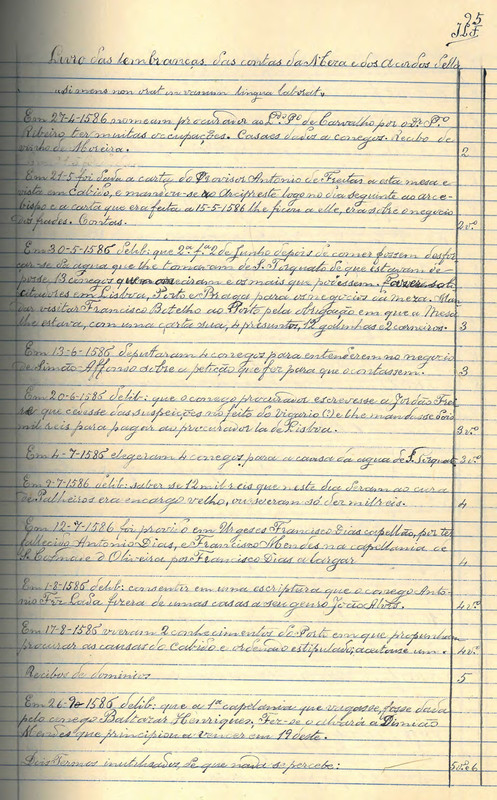 25
Livro das lembranças das contas da Meza e dos Acordos delle
"si mens non orat in vanum lingua laborat"
Em 27-4-1586 nomeiam procurador ao L.do P.o de Carvalho por o dr. P.o
Ribeiro ter muitas occupações. Casaes dados a conegos. Recibo de
vinho de Moreira.
2
Em 21-5 foi dada a carta do Provisor Antonio de Freitas a esta mesa e
vista em Cabido, e mandou-se ao Arcipreste logo no dia seguinte ao arce-
bispo e a carta que era feita a 15-5-1586 lhe ficou a elle, era sobre o negocio
dos frades. Contas.
2 v.o
Em 30-5-1586 delib: que 2.a f.a 2 de Junho depois de comer fossem desfor-
çar-se da agua que lhe tomaram de S. Torquato de que estavam de
posse, 13 conegos que nomeiram e os mais que podessem. Fazer soli-
citadores em Lisboa, Porto e Braga para os negocios da meza. Man-
dar visitar Francisco Botelho ao Porto pela obrigação em que a Mesa
lhe estava, com uma carta sua, 4 presuntos, 12 gallinhas e 2 carneiros.
3
Em 13-6-1586 deputaram 4 conegos para entenderem no negocio
de Simão Affonso sobre a petição que fez para que o contassem.
3
Em 20-6-1586 delib: que o conego procurador escrevesse a Jordão Frei-
re que caisse das suspeições no feito do Vigario (?) e lhe mandasse dois
mil reis para pagar ao procurador la de Lisboa.
3 v.o
Em 4-7-1586 elegeram 4 conegos para a causa da agua de S. Torquato
3 v.o
Em 9-7-1586 delib: saber se 12 mil reis que neste dia deram ao cura
de Palheiros era encargo velho, ou se eram só dez mil reis.
4
Em 12-7-1586 foi provido em Urgeses Francisco Dias capellão, por ter
fallecido Antonio Dias, e Francisco Mendes na capellania de
S. Cosmade d'Oliveira por Francisco Dias a largar
4
Em 1-8-1586 delib: consentir em uma escriptura que o conego Anto-
nio Frz Lada fizera de umas casas a seu genro João Alves.
4 v.o
Em 17-8-1586 vieram 2 conhecimentos do Porto em que propunham
procurar as causas do Cabido e ordenado estipulado, aceitouse um.
4 v.o
Recibos de dominios
5
Em 26-9-1586 delib: que a 1.a capelania que vagasse, fosse dada
pelo conego Baltazar Henriques. Fez-se o alvará a Dimião
Mendes que principiou a vencer em 19 deste.
Dois termos inutilizados, de que nada se percebe:
5 v.o e 6